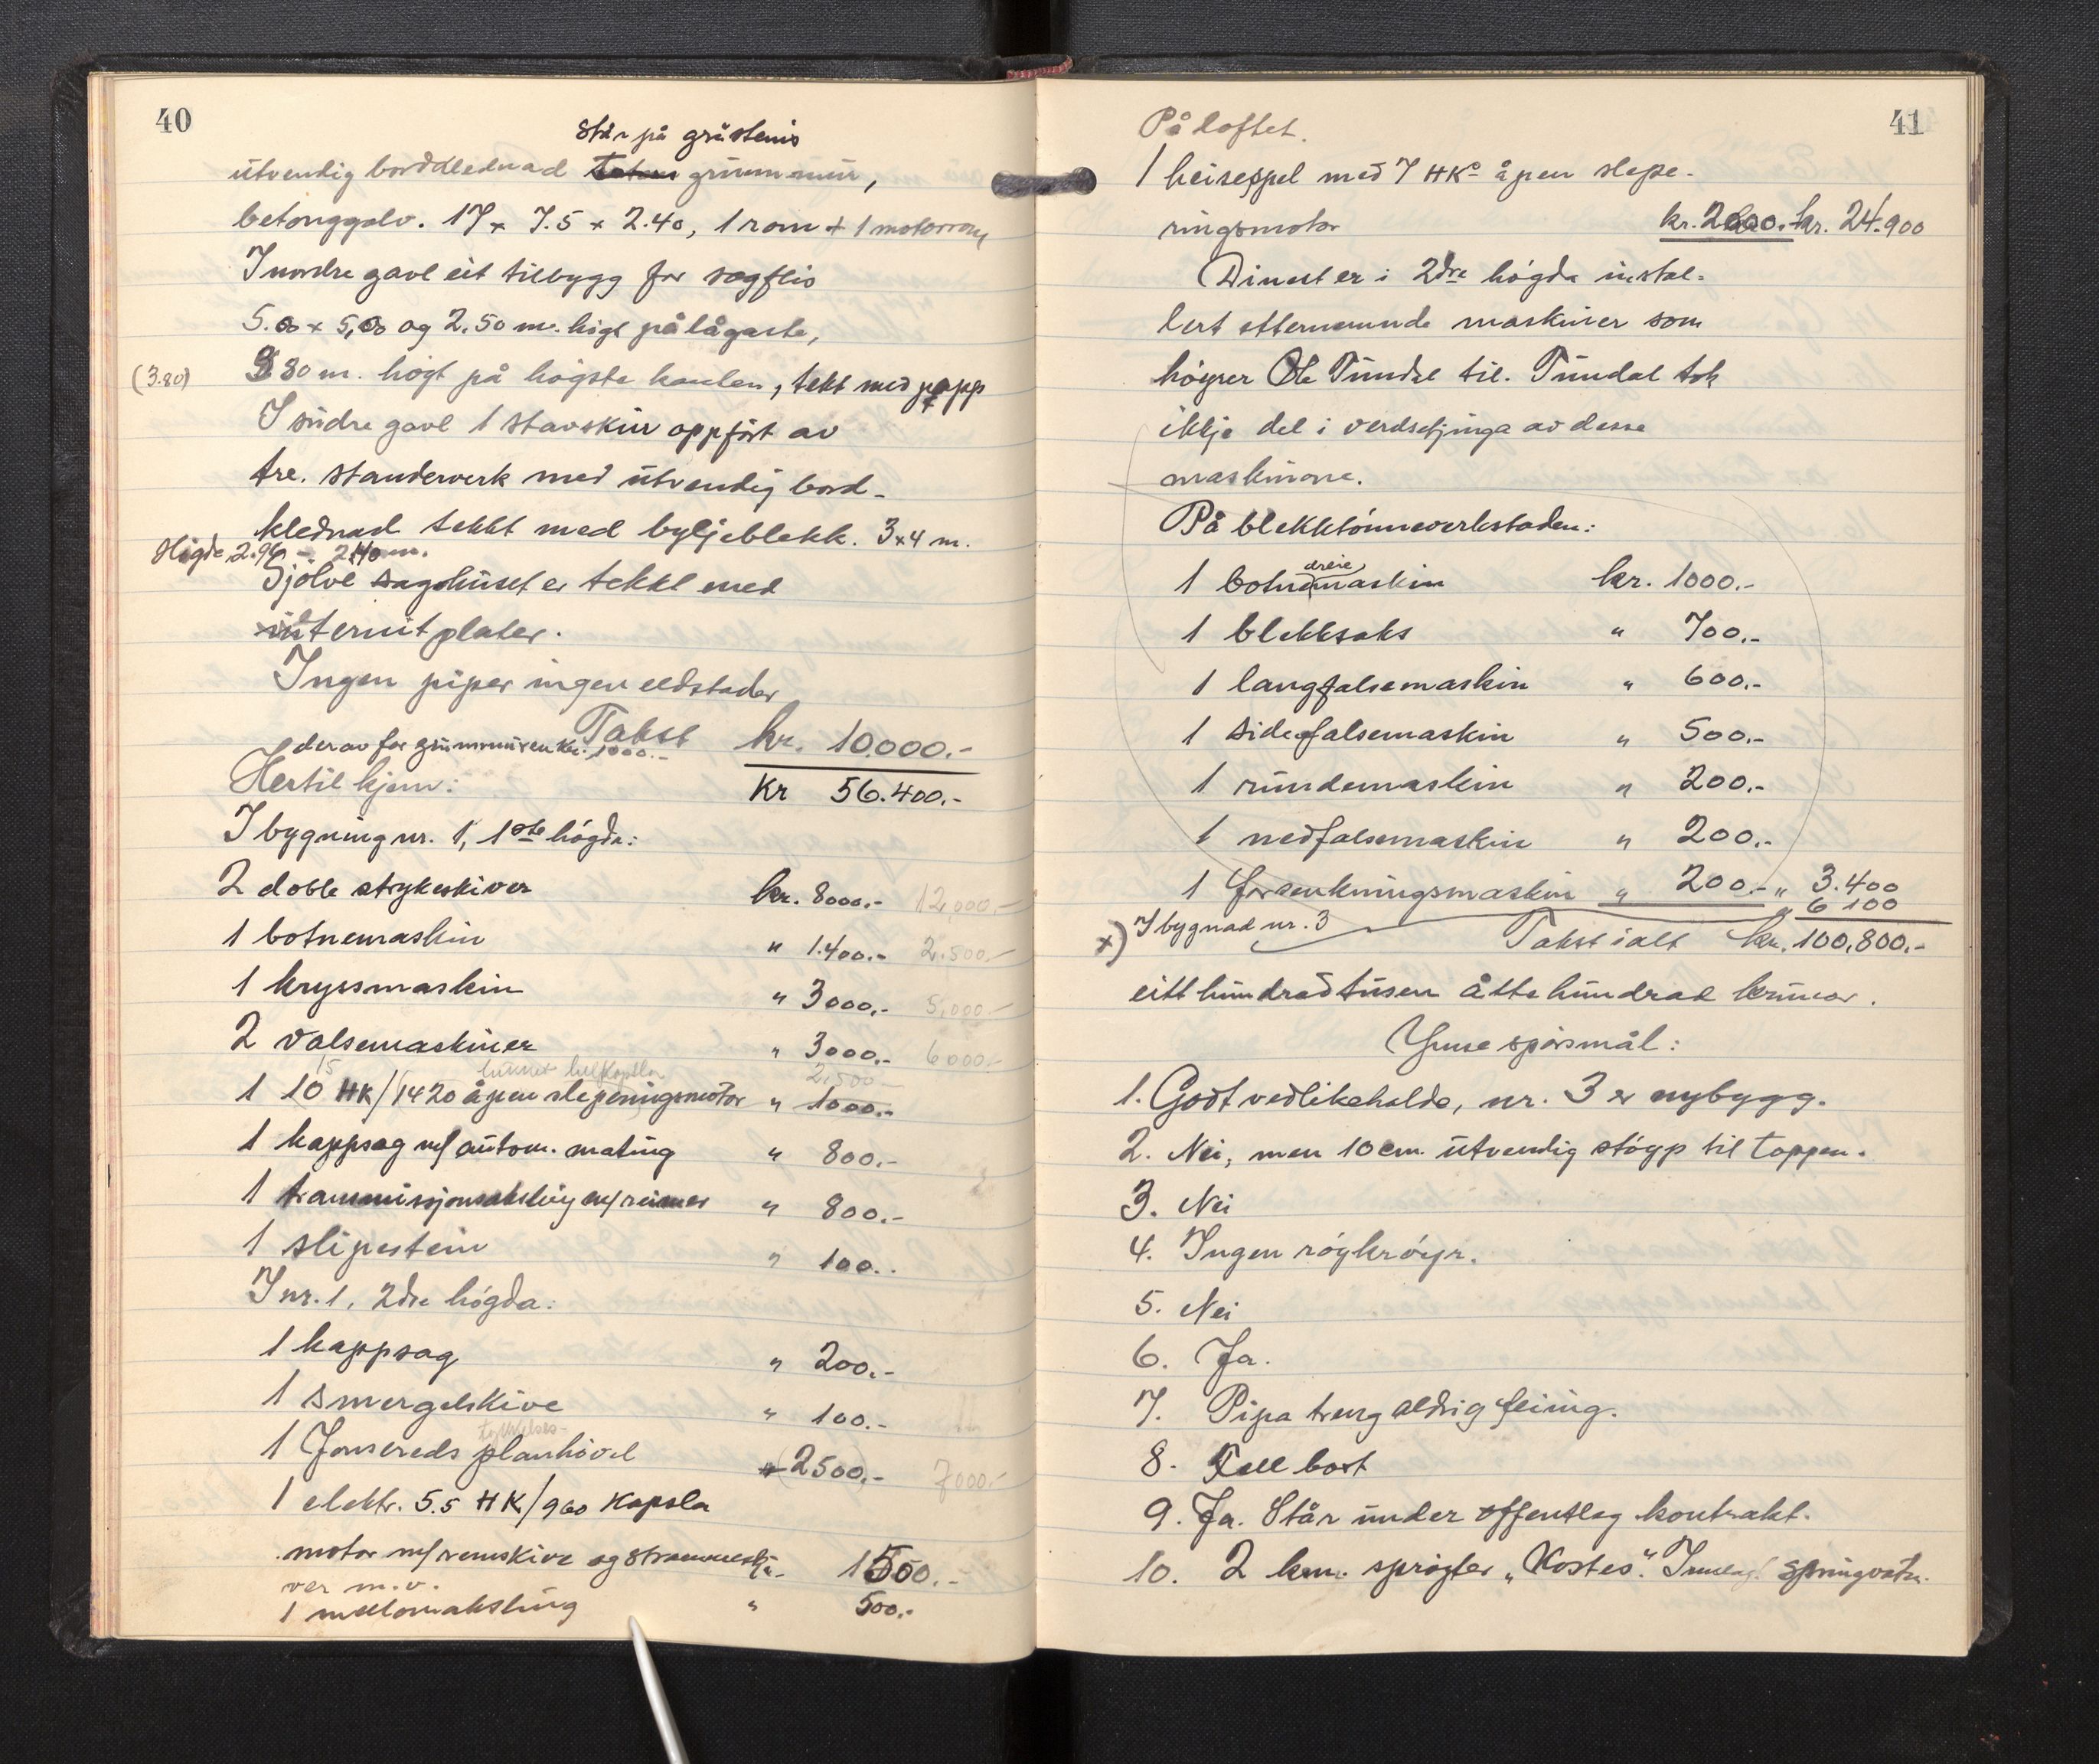 40
står på gråsteins
utvendig bordklednad grunnmur,
betonggolv. 17 x 7.5 x 2.40, 1 rom + 1 motorrom
I nordre gavl eit tilbygg for sagflis
5.00 x 5,00 og 2.50 m. högt på lågaste,
(3.80) 3 80 m. högt på högste kanten, tekt med papp
I sudre gavl 1 stavskur oppfört av
tre. standerverk med utvendig bord-
klednad tekkt med bylgjeblekk. 3x4 m.
Högde 2.90 - 2.40 m.
Sjölve saghuset er tekkt med
internitplater.
Ingen piper ingen eldstader
Takst kr. 10.000.-
derav for grunnmuren kr. 1000.-
Hertil kjem: Kr 56.400.-
I bygning nr. 1, 1ste högda:
2 doble strykeskiver kr. 8000.- 12,000.-
1 botnemaskin " 1.400.- 2.500.-
1 kryssmaskin " 3000.- 5,000.-
2 valsemaskiner " 3000.- 6000.-
15 lukket helkapsla 2,500
1 10 HK/1420 åpen sleperingsmotor " 1000.-
1 kappsag m/ autom. mating " 800.-
1 transmissjonsaksling m/reimer " 800.-
1 slipestein " 100..
I nr. 1, 2dre högda:
1 kappsag " 200.-
1 smergelskive " 100.-
tykkelses-
1 Jonsereds planhövel " (2500.- 7000.-
1 elektr. 5.5 HK/960 kapsla
motor m/remskive og strammeski- 1500.-
ver m.v.
1 mellomaksling " 500.-
41
På loftet.
1 heisespel med 7 HK åpen slepe-
ringsmotor kr. 2600.- kr. 24.900
Dinest er i 2dre högda instal-
lert etternemnde maskiner som
höyrer Ole Tundal til. Tundal tok
ikkje del i verdsetjinga av desse
maskinone.
På blekktönneverkstaden:
dreie
1 botnemaskin kr. 1000.-
1 blekksaks " 700.-
1 langfalsemaskin " 600.-
1 sidefalsemaskin " 500.-
1 rundemaskin " 200.-
1 nedfalsemaskin " 200.-
1 forsenkningsmaskin " 200.- " 3.400
x) I bygnad nr. 3 " 6 100
Takst ialt kr. 100,800.-
eitt hundradtusen åtte hundrad krunor.
Ymse spörsmål:
1. Godt vedlikeholde, nr. 3 er nybygg.
2. Nei, men 10 cm. utvendig stöyp til toppen.
3. Nei
4. Ingen röykröyr.
5. Nei
6. Ja.
7. Pipa treng aldrig feiing.
8. Fell bort
9. Ja. Står under offentleg kontrakt.
10. 2 km. spröyter "Kostes". Innlagt springvatn.